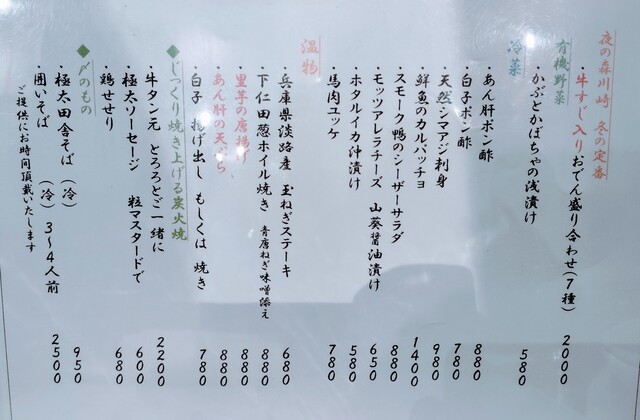 夜の森川崎 冬の定番
・牛すじ入りおでん盛り合わせ(7種) 2000
有機野菜
・かぶとかぼちゃの浅漬け 580
冷菜
・あん肝ポン酢 880
・白子ポン酢 780
・天然シマアジ刺身 980
・鮮魚のカルパッチョ 1400
・スモーク鴨のシーザーサラダ 880
・モッツアレラチーズ 山葵醤油漬け 650
・ホタルイカ沖漬け 580
・馬肉ユッケ 780
温物
・兵庫県淡路産 玉ねぎステーキ 680
・下仁田葱ホイル焼き 青唐ねぎ味噌添え 880
・里芋の唐揚げ 880
・あん肝の天ぷら 880
・白子 揚げ出し もしくは 焼き 780
◆じっくり焼き上げる炭火焼
・牛タン元 とろろとご一緒に 2200
・極太ソーセージ 粒マスタードで 600
・鶏せせり 680
◆〆のもの
・極太田舎そば (冷) 950
・囲いそば (冷) 3~4人前 2500
ご提供にお時間頂戴いたします